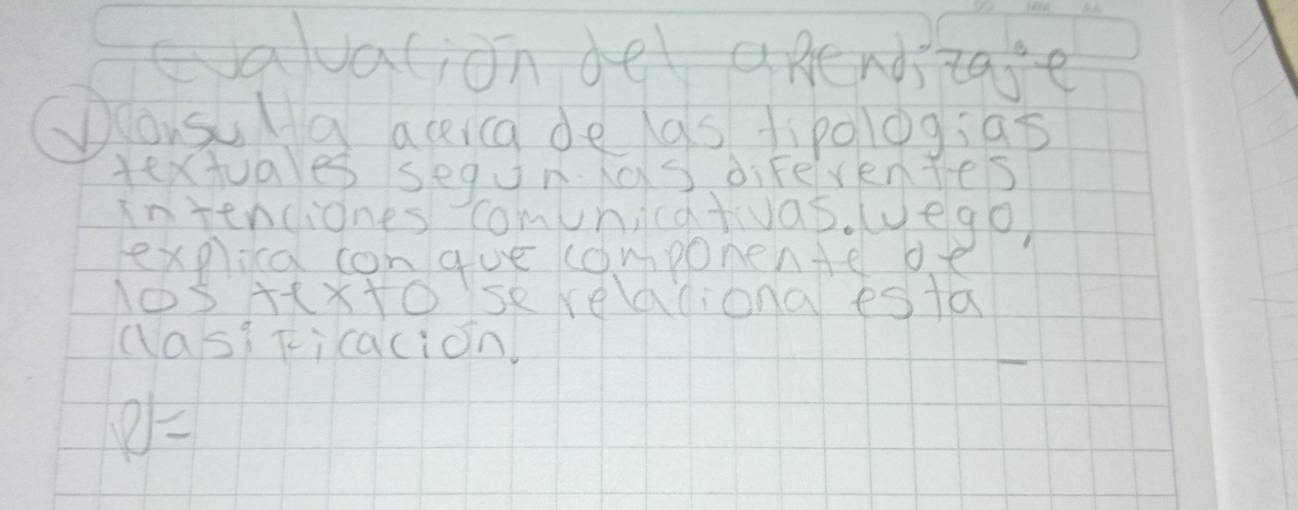 Evaluación del aprendizaje
① Consulta acerca de las tipologias
textuales segun las diferentes
intenciones comunicativas. luego,
explica con que componente de
los texto se relaciona esta
clasificación.
R=